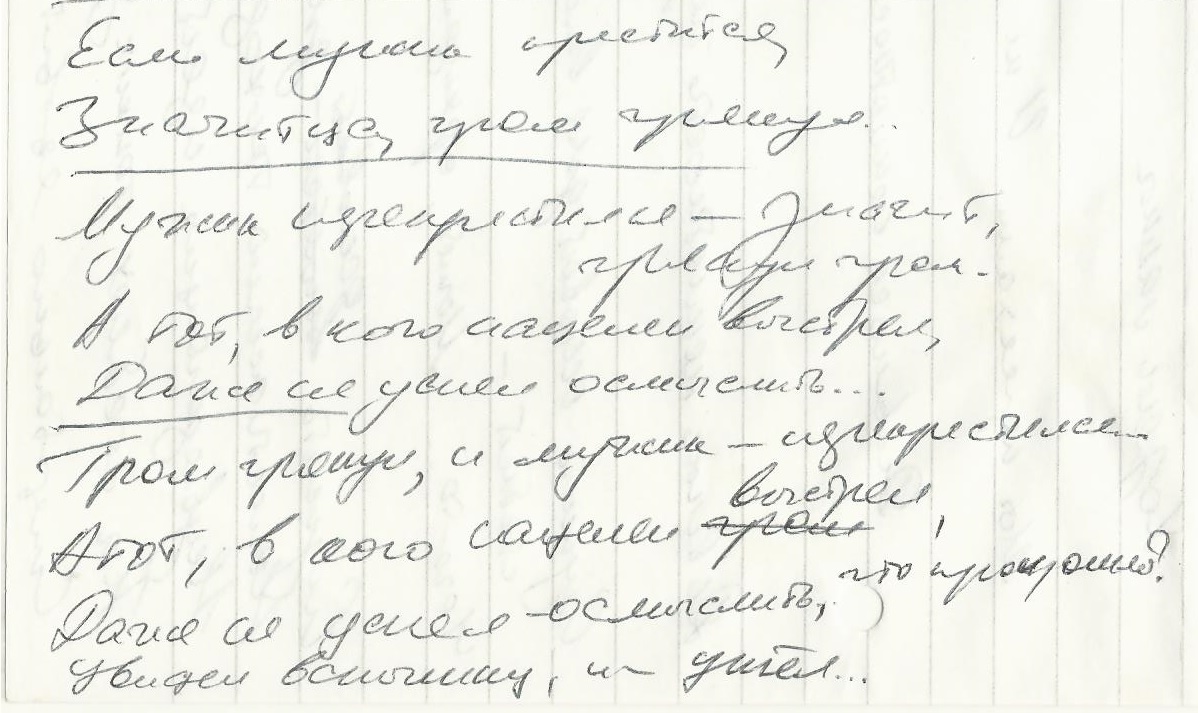 Если мужик крестится,
Значитца, гром грянул...
Мужик перекрестился — значит,
грянул гром.
А тот, в кого нацелен выстрел,
Даже не успел осмыслить...
Гром грянул, и мужик — перекрестился...
выстрел,
А тот, в кого нацелен гром
что произошло?
Даже не успел осмыслить,
Увидел вспышку, и — улетел...